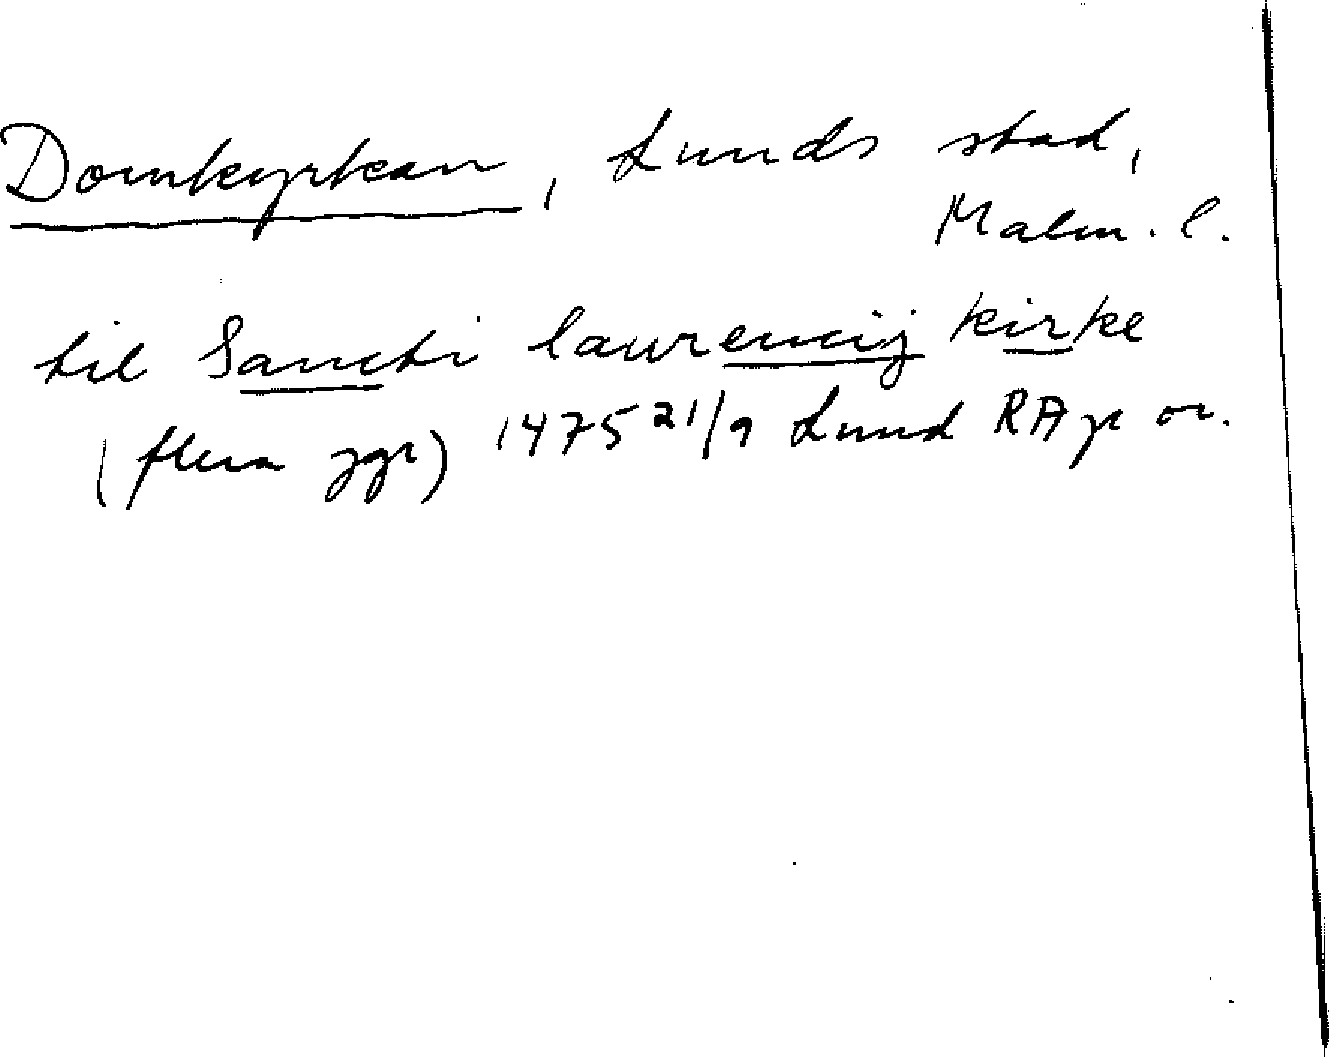 Domkyrkan, Lunds stad,
Malm. l.
til Sancti laurencij kirke
(flera ggr) 1475 21/9 Lund RAp or.